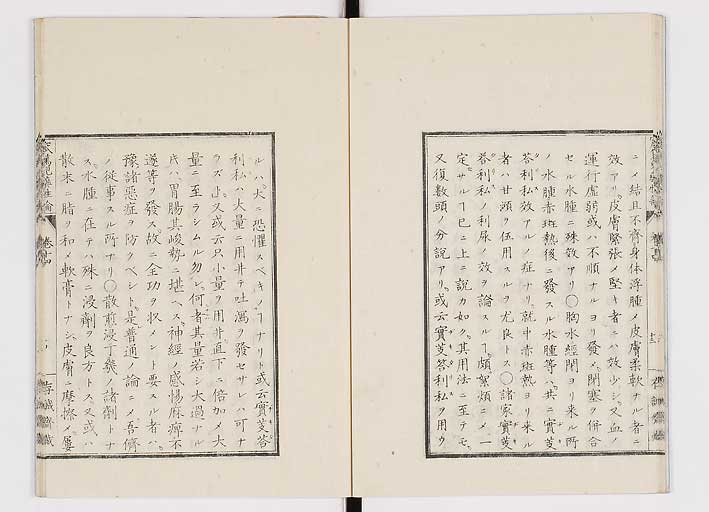 ニメ結且不齊身体浮腫メ皮膚柔軟ナル者ニ
效アリ皮膚緊張メ堅キ者ニハ效少シ又血ノ
運行虚弱或ハ不順ナルヨリ發メ閉塞ヲ併合
セル水腫ニ殊效アリ〇胸水經閉ヨリ来ル所
ノ水腫赤斑熱後ニ發スル水腫等ハ共ニ實芰
答利私效アルノ症ナリ就中赤斑熱ヨリ来ル
者ハ甘頭ヲ伍用スルヲ尤良トス〇諸家實芰
答利私ノ利尿ノ效ヲ論スルヿ頗絮煩ニメ一
定セサルヿ已ニ上ニ説カ如ク其用法ニ至テモ
又復數頭ノ分説アリ或云實芰答利私ヲ用ウ
ルハ大ニ恐懼スベキノヿナリト或云實芰答
利私ハ大量ニ用井テ吐瀉ヲ發セサレハ可ナ
ラズ又或云只小量ヲ用井直下ニ倍加メ大
量ニ至ラシムル勿レ何者其量若シ大過ナル
片ハ胃腸其峻勢ニ堪ヘス神經ノ感惕麻痺不
遂等ヲ發ス故ニ全功ヲ收メント要スル者ハ
豫諸惡症ヲ防クベシト是普通ノ論ニメ吾儕
ノ從事スル所ナリ〇散煎浸丁幾ノ諸劑トナ
ス水腫ニ在テハ殊ニ浸劑ヲ良方トス又或ハ
散末ニ脂ヲ和メ軟膏トナシ皮膚ニ摩擦メ屢